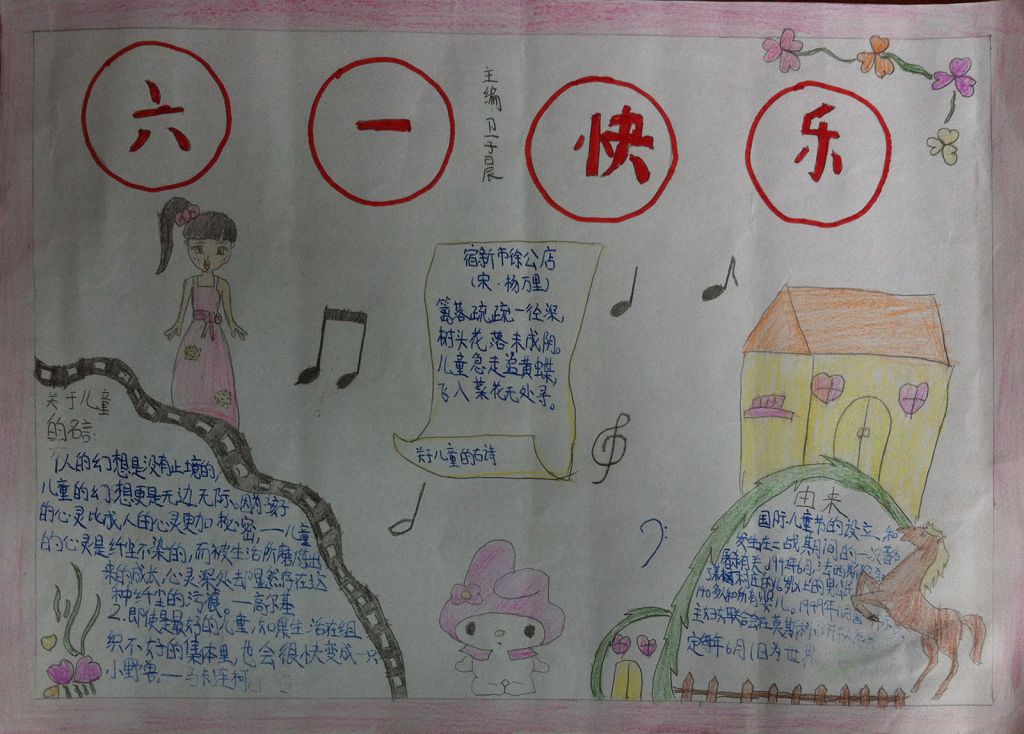 六一快乐
主编 卫子晨
宿新市徐公店
(宋·杨万里)
篱落疏疏一径深,
树头花落未成阴。
儿童急走追黄蝶,
飞入菜花无处寻。
关于儿童的古诗
关于儿童
的名言:
人的幻想是没有止境的,
儿童的幻想更是无边无际。因为孩子
的心灵比成人的心灵更加秘密,——儿童
的心灵是纤尘不染的,而被生活所磨炼出
来的成长心灵深处去明显然存在这
种纤尘的污痕。——高尔基
2.即使是最好的儿童,如果生活在组
织不好的集体里,也会很快变成一只
小野兽。——马卡连柯
由来
国际儿童节的设立,和
发生在二战期间的一次
有关,194年6月,法西斯
村庄的16岁以上的男公民
140多人和所有婴儿。1949年11月
主妇女联合会在莫斯科
定每年6月1日为世界